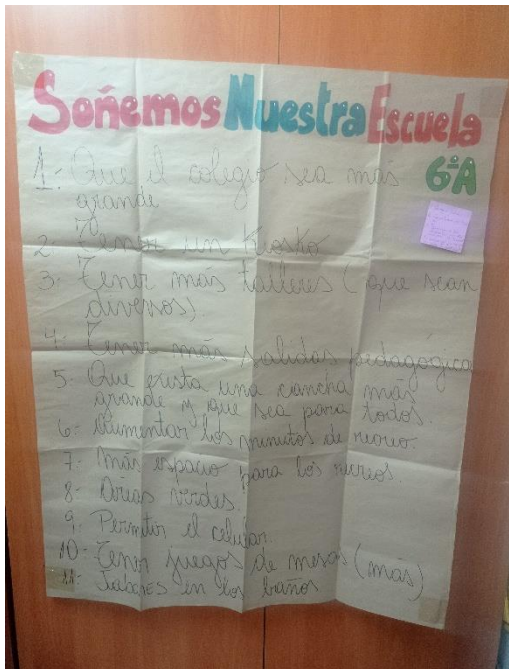 Soñemos Nuestra Escuela
6ºA
1- Que el colegio sea más
grande
2- Tener un Kiosko
3- Tener más talleres (que sean
diversos).
4- Tener más salidas pedagógica
5- Que exista una cancha más
grande y que sea para todos.
6- Aumentar los minutos de recreo.
7- Más espacio para los recreos.
8- Áreas verdes.
9- Permitir el celular.
10- Tener juegos de mesas (más)
11- Jabones en los baños